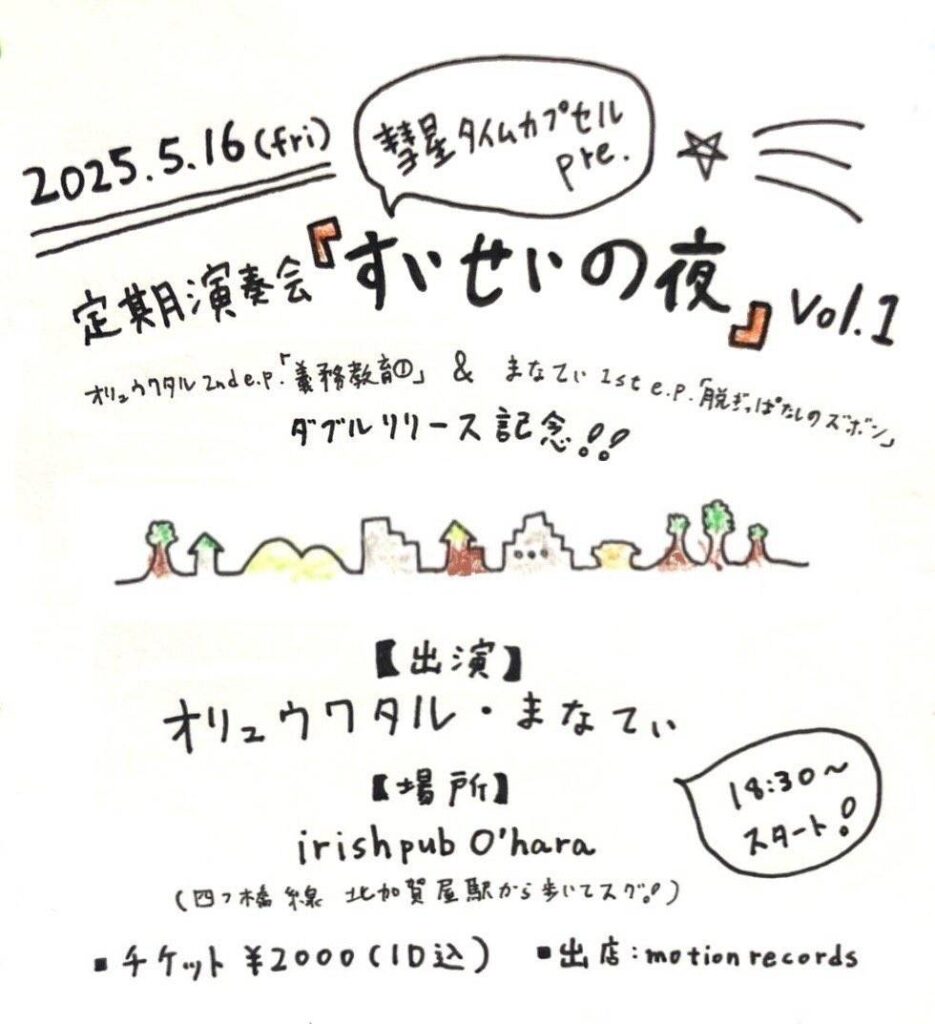 2025.5.16(fri)
彗星タイムカプセル
pre.
定期演奏会『すいせいの夜』vol.1
オリュウワタル 2nd e.p.「義務教育①」 & まなてぃ 1st e.p.「脱ぎっぱなしのズボン」
ダブルリリース記念!!
【出演】
オリュウワタル・まなてぃ
【場所】
irishpub O'hara
(四つ橋線 北加賀屋駅から歩いてスグ!)
18:30〜
スタート!
▪チケット ¥2000(1D込) ▪出店:motion records